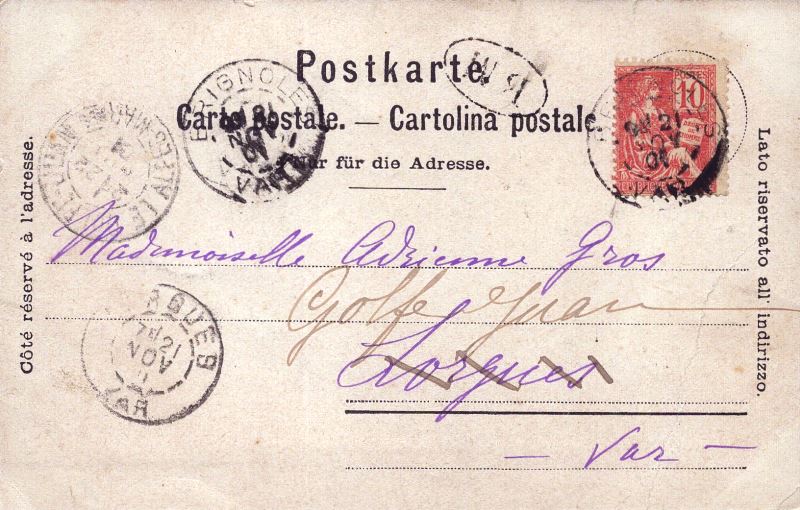 Postkarte.
Carte postale. — Cartolina postale.
Nur für die Adresse.
Côté réservé à l'adresse.
Lato riservato all' indirizzo.
BRIGNOLES
21
NOV
01
VAR
10
POSTES
21
Mademoiselle Adrienne Gros
Golfe Juan
Lorgues
— Var —
RGUES
21
NOV
VAR